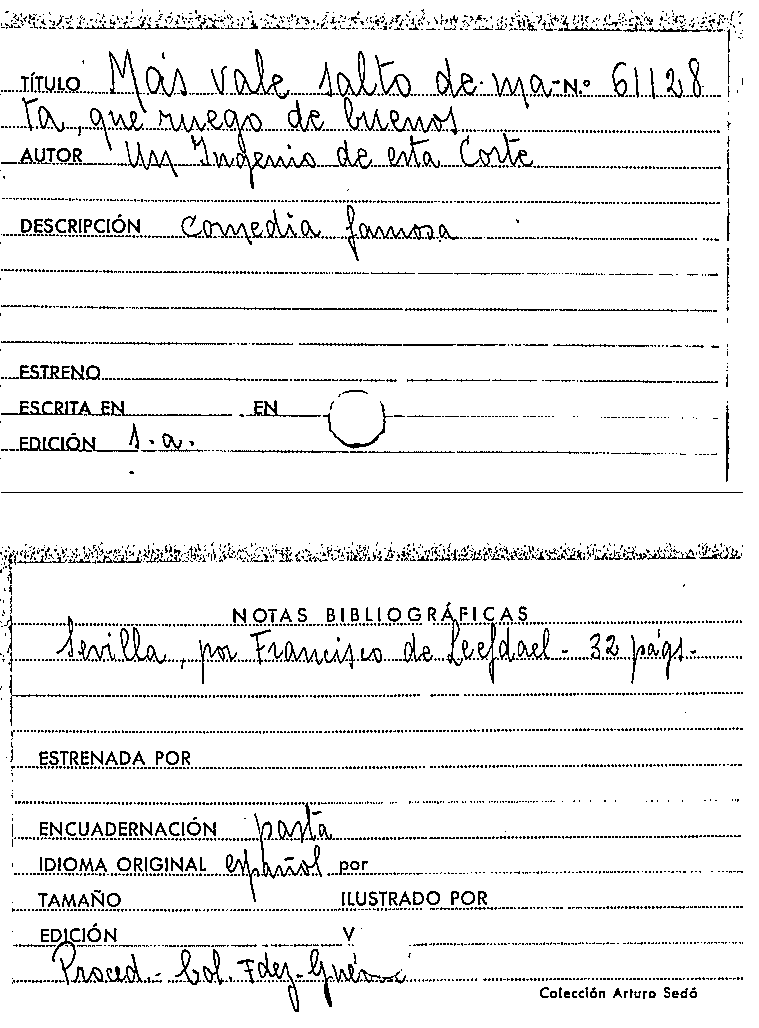 TÍTULO Más vale salto de ma- N.º 61128
ta, que ruego de buenos
AUTOR Un Ingenio de esta Corte
DESCRIPCIÓN Comedia famosa
ESTRENO
ESCRITA EN EN
EDICIÓN s.a.
NOTAS BIBLIOGRÁFICAS
Sevilla, por Francisco de Leefdael - 32 págs.
ESTRENADA POR
ENCUADERNACIÓN pasta
IDIOMA ORIGINAL español por
TAMAÑO ILUSTRADO POR
EDICIÓN V
Proced.- Col. Fdez-
Colección Arturo Sedó